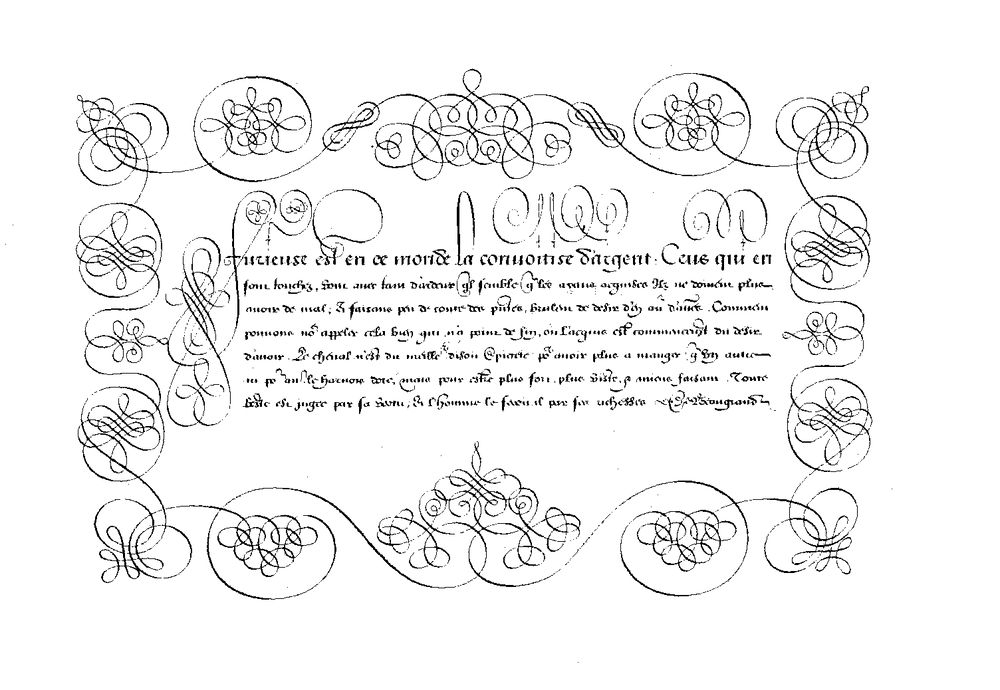 Furieuse est en ce monde la convoitise d'argent. Ceus qui en
sont touchez, sont avec tant d'ardeur ql semble q les ayans acquises Ilz ne doivent plus
avoir de mal, Et faisans peu de conte des pntes, bruslent de desir d'en avoir d'autres. Comment
pouvons nos appeler cela bien qui n'a point de fin, ou l'acquis est commencement du desir
d'avoir. Le cheval n'est du meilleur disoit Epictete por avoir plus a manger qu'un autre
ni por avoir le harnois doré, mais pour estre plus fort, plus viste, & mieux faisant. Toute
beste est jugee par sa vertu, Et l'homme le seroit il par ses richesses De Beaugrand